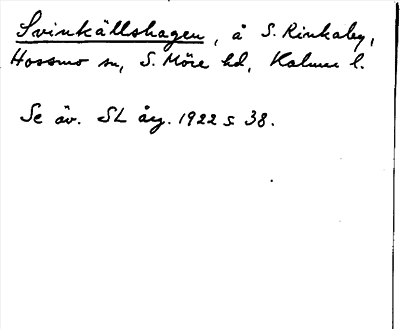 Svinkällshagen, å S. Rinkaby,
Hossmo sn, S. Möre hd, Kalmar l.
Se äv. SL åg. 1922 s 38.